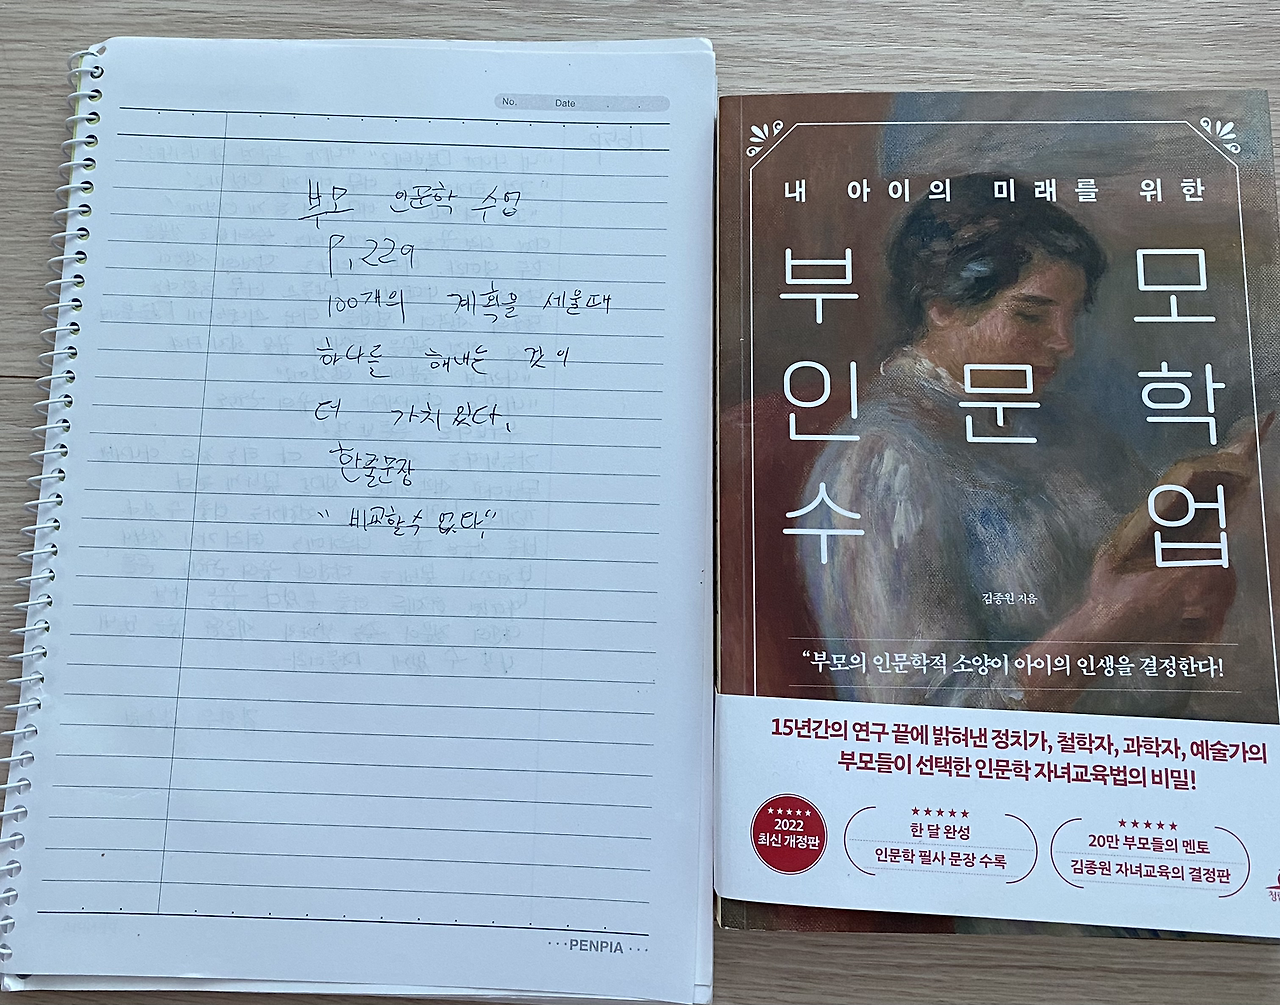 No. Date
부모 인문학 수업
P. 229
100개의 계획을 세울때
하나를 해내는 것이
더 가치 있다.
한줄문장
"비교할수 없다"
···PENPIA···
내 아이의 미래를 위한
부모
인문학
수업
김종원 지음
“부모의 인문학적 소양이 아이의 인생을 결정한다!
15년간의 연구 끝에 밝혀낸 정치가, 철학자, 과학자, 예술가의
부모들이 선택한 인문학 자녀교육법의 비밀!
★★★★★
2022
최신 개정판
★★★★★
한 달 완성
인문학 필사 문장 수록
★★★★★
20만 부모들의 멘토
김종원 자녀교육의 결정판